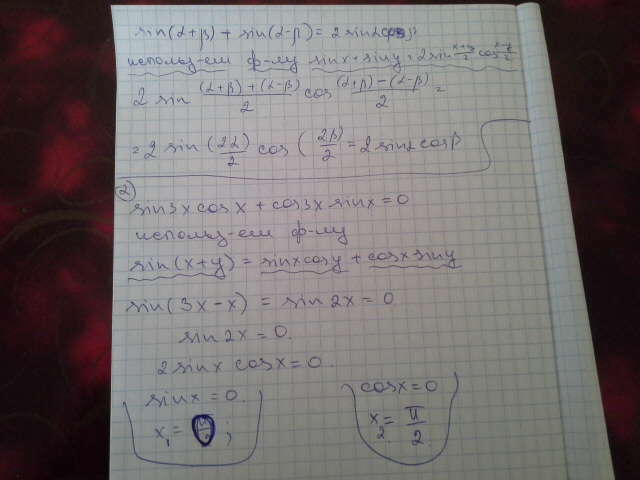 sin(α+β) + sin(α-β) = 2 sinα cosβ
использ-ем ф-лу sinx + siny = 2 sin (x+y)/2 cos (x-y)/2
2 sin ((α+β)+(α-β))/2 cos ((α+β)-(α-β))/2 =
= 2 sin (2α/2) cos (2β/2 = 2 sinα cosβ
2)
sin3x cosx + cos3x sinx = 0
использ-ем ф-лу
sin(x+y) = sinx cosy + cosx siny
sin(3x-x) = sin2x = 0
sin2x = 0.
2 sinx cosx = 0.
sinx = 0. cosx = 0
x₁ = ; x₂ = π/2.